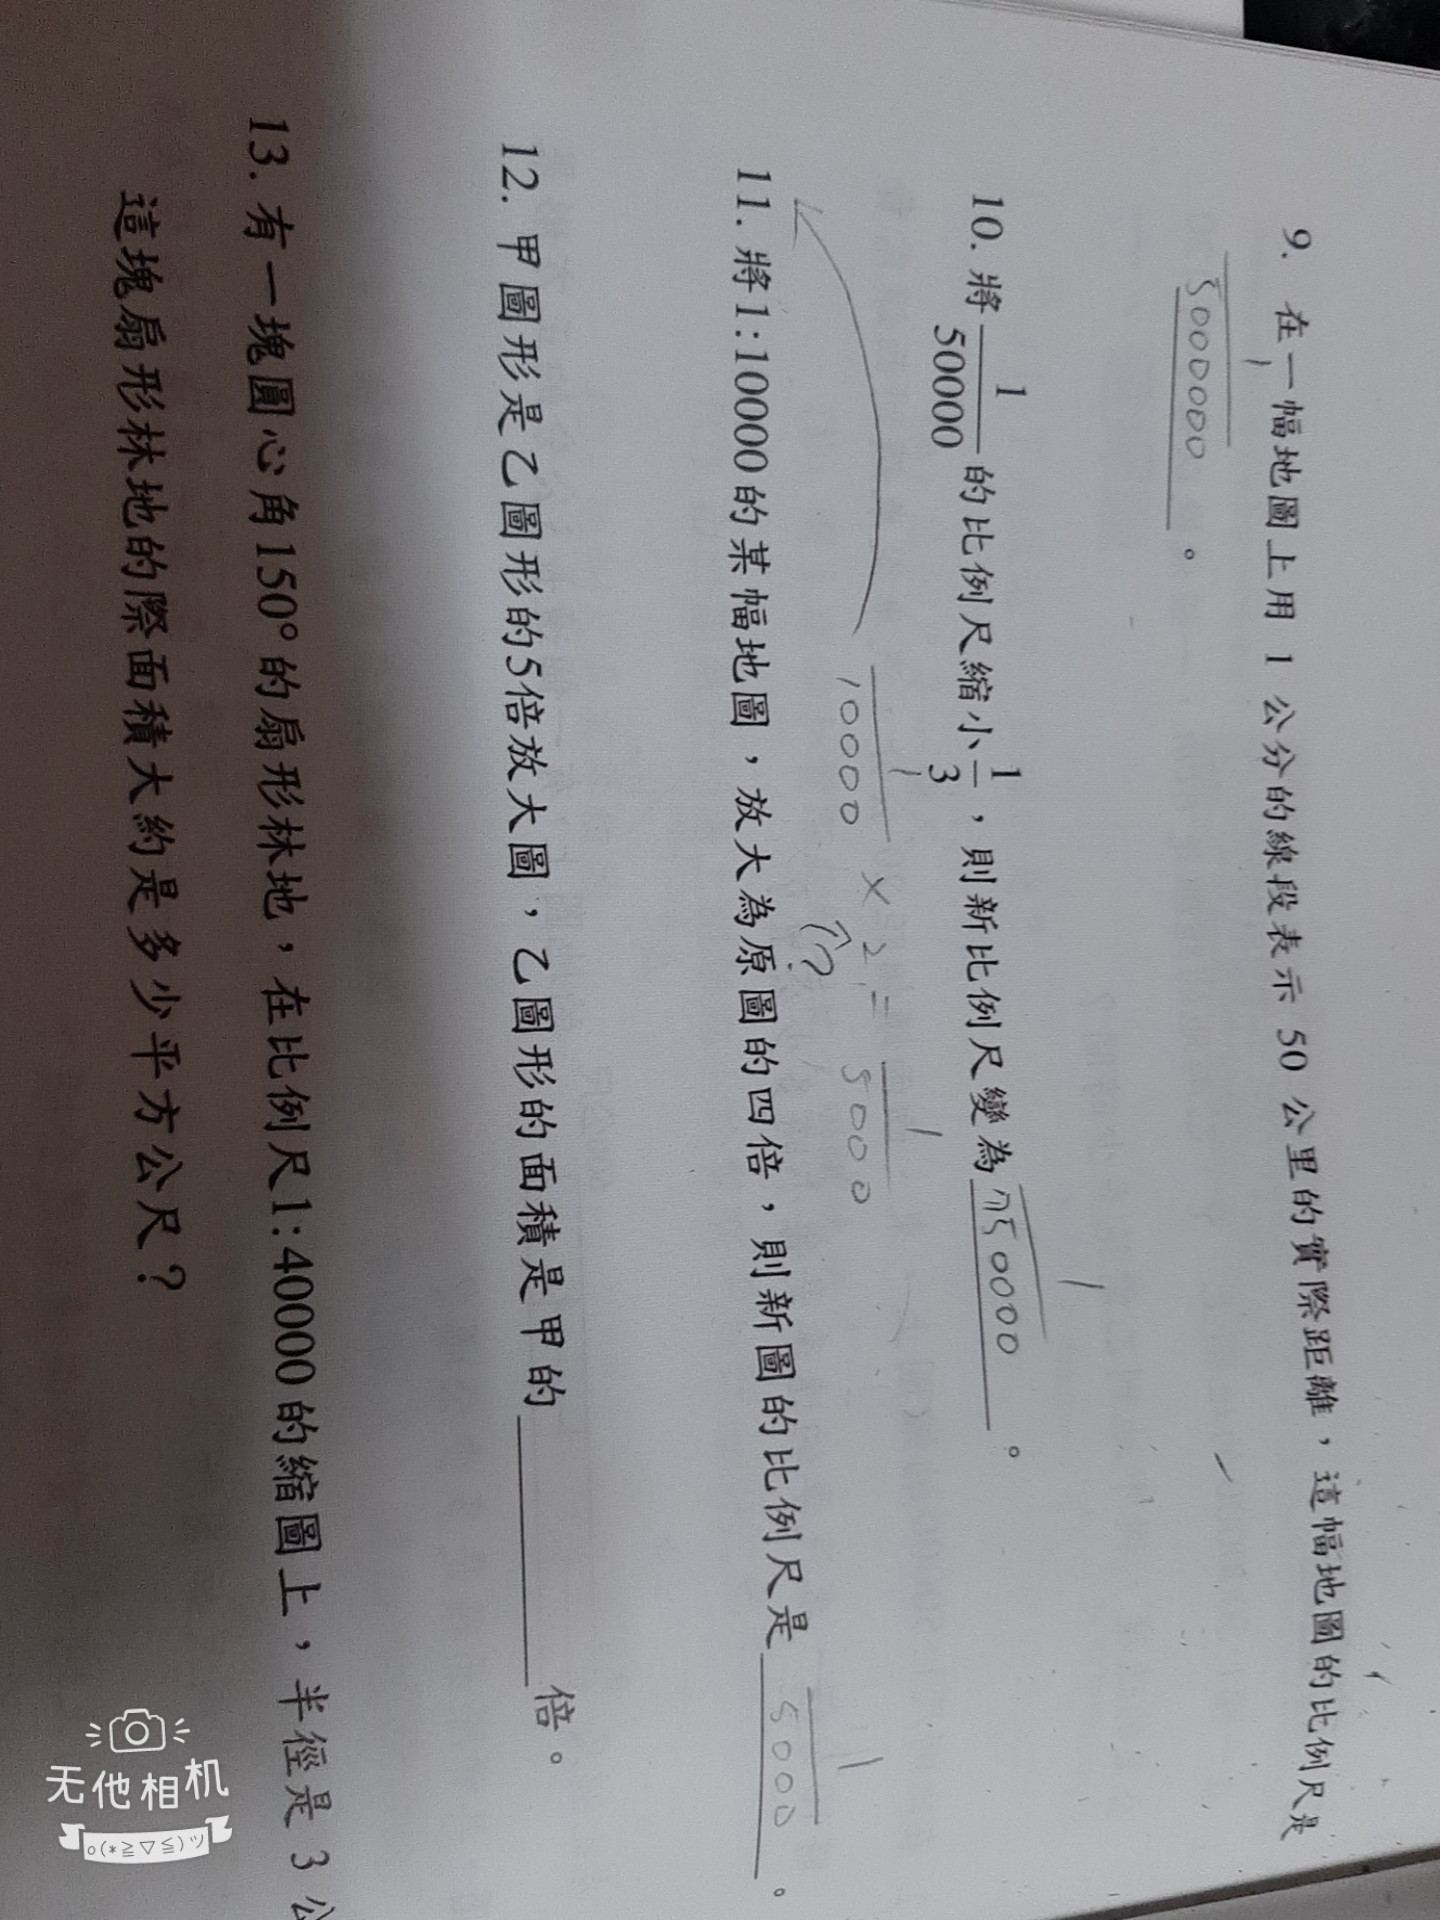 9. 在一幅地圖上用 1 公分的線段表示 50 公里的實際距離，這幅地圖的比例尺是
1
5000000 。
10. 將 1/50000 的比例尺縮小 1/3，則新比例尺變為 1/750000 。
1/10000 × 2 = 1/5000
??
11. 將1:10000的某幅地圖，放大為原圖的四倍，則新圖的比例尺是 1/5000 。
12. 甲圖形是乙圖形的5倍放大圖，乙圖形的面積是甲的 倍。
13. 有一塊圓心角150°的扇形林地，在比例尺1:40000的縮圖上，半徑是 3 公
這塊扇形林地的際面積大約是多少平方公尺？
无他相机
o(*≧▽≦)ツ